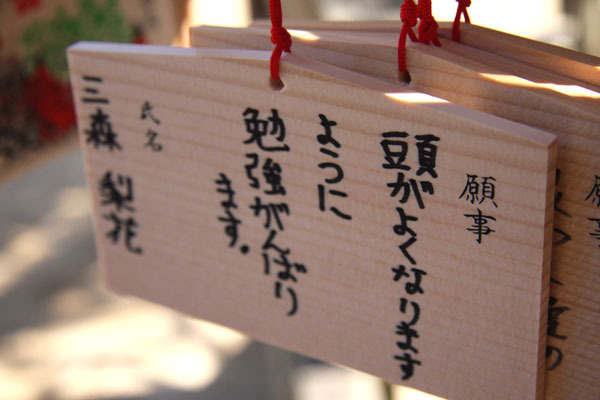 願事
頭
豆がよくなります
ように
勉強がんばり
ます。
氏名
三森 梨花
願事